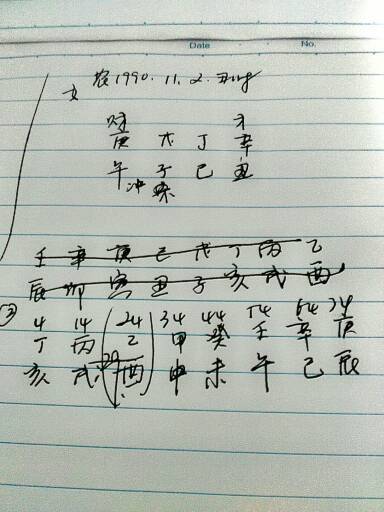 Date No.
女 农1990.11.2.
财 才
庚 戊 丁 辛
午 子 巳 丑
冲
壬 辛 庚 己 戊 丁 丙 乙
辰 卯 寅 丑 子 亥 戌 酉
③ 4 14 24 34 44 54 64 74
丁 丙 乙 甲 癸 壬 辛 庚
亥 戌 29 酉 申 未 午 巳 辰